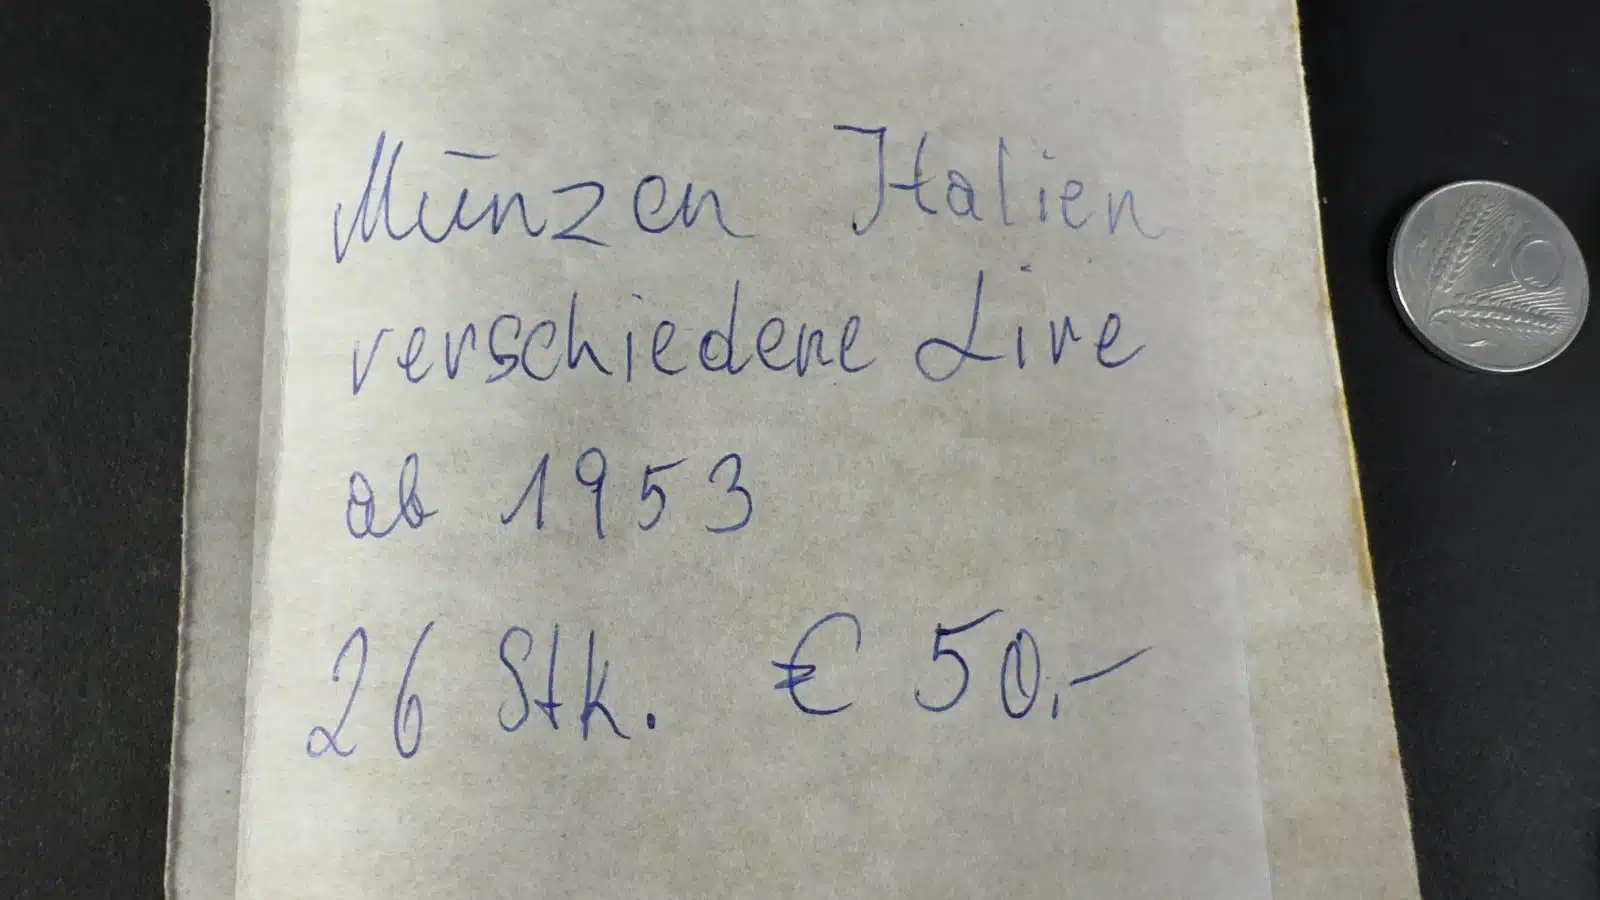 Münzen Italien
verschiedene Lire
ab 1953
26 Stk. € 50,-